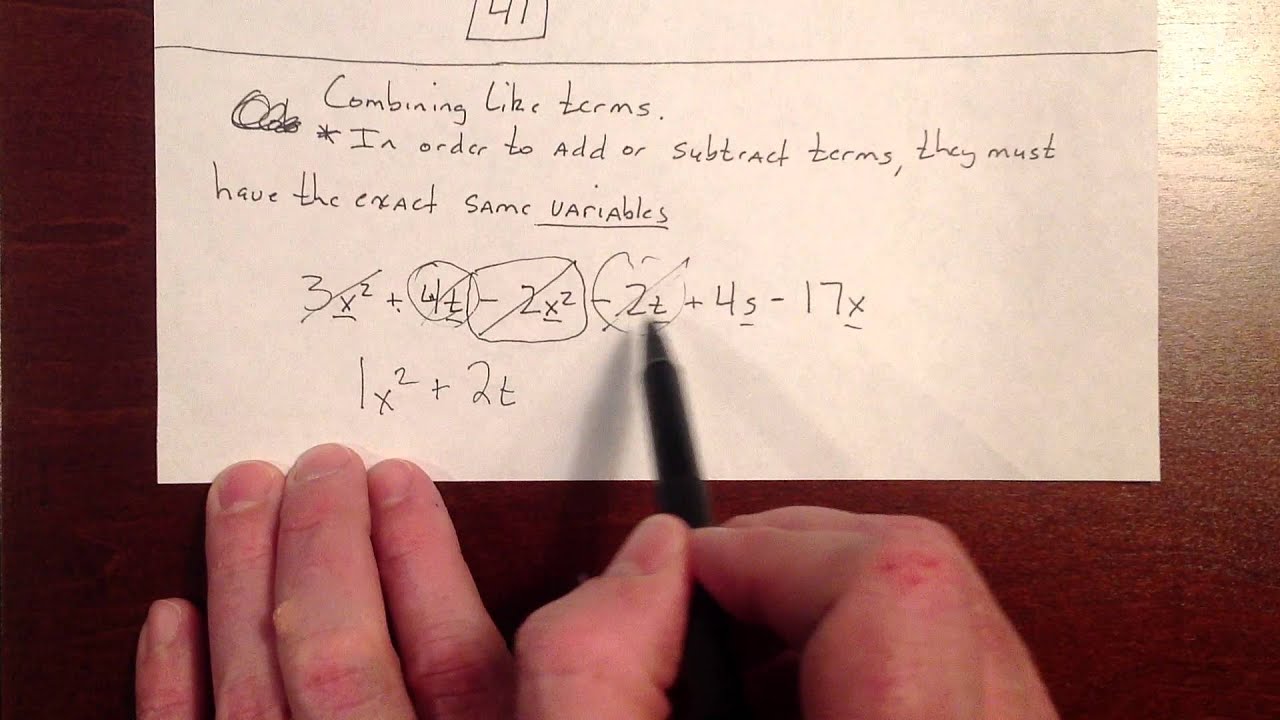 41
Combining like terms.
* In order to add or subtract terms, they must
have the exact same variables
3x² + 4t - 2x² - 2t + 4s - 17x
1x² + 2t